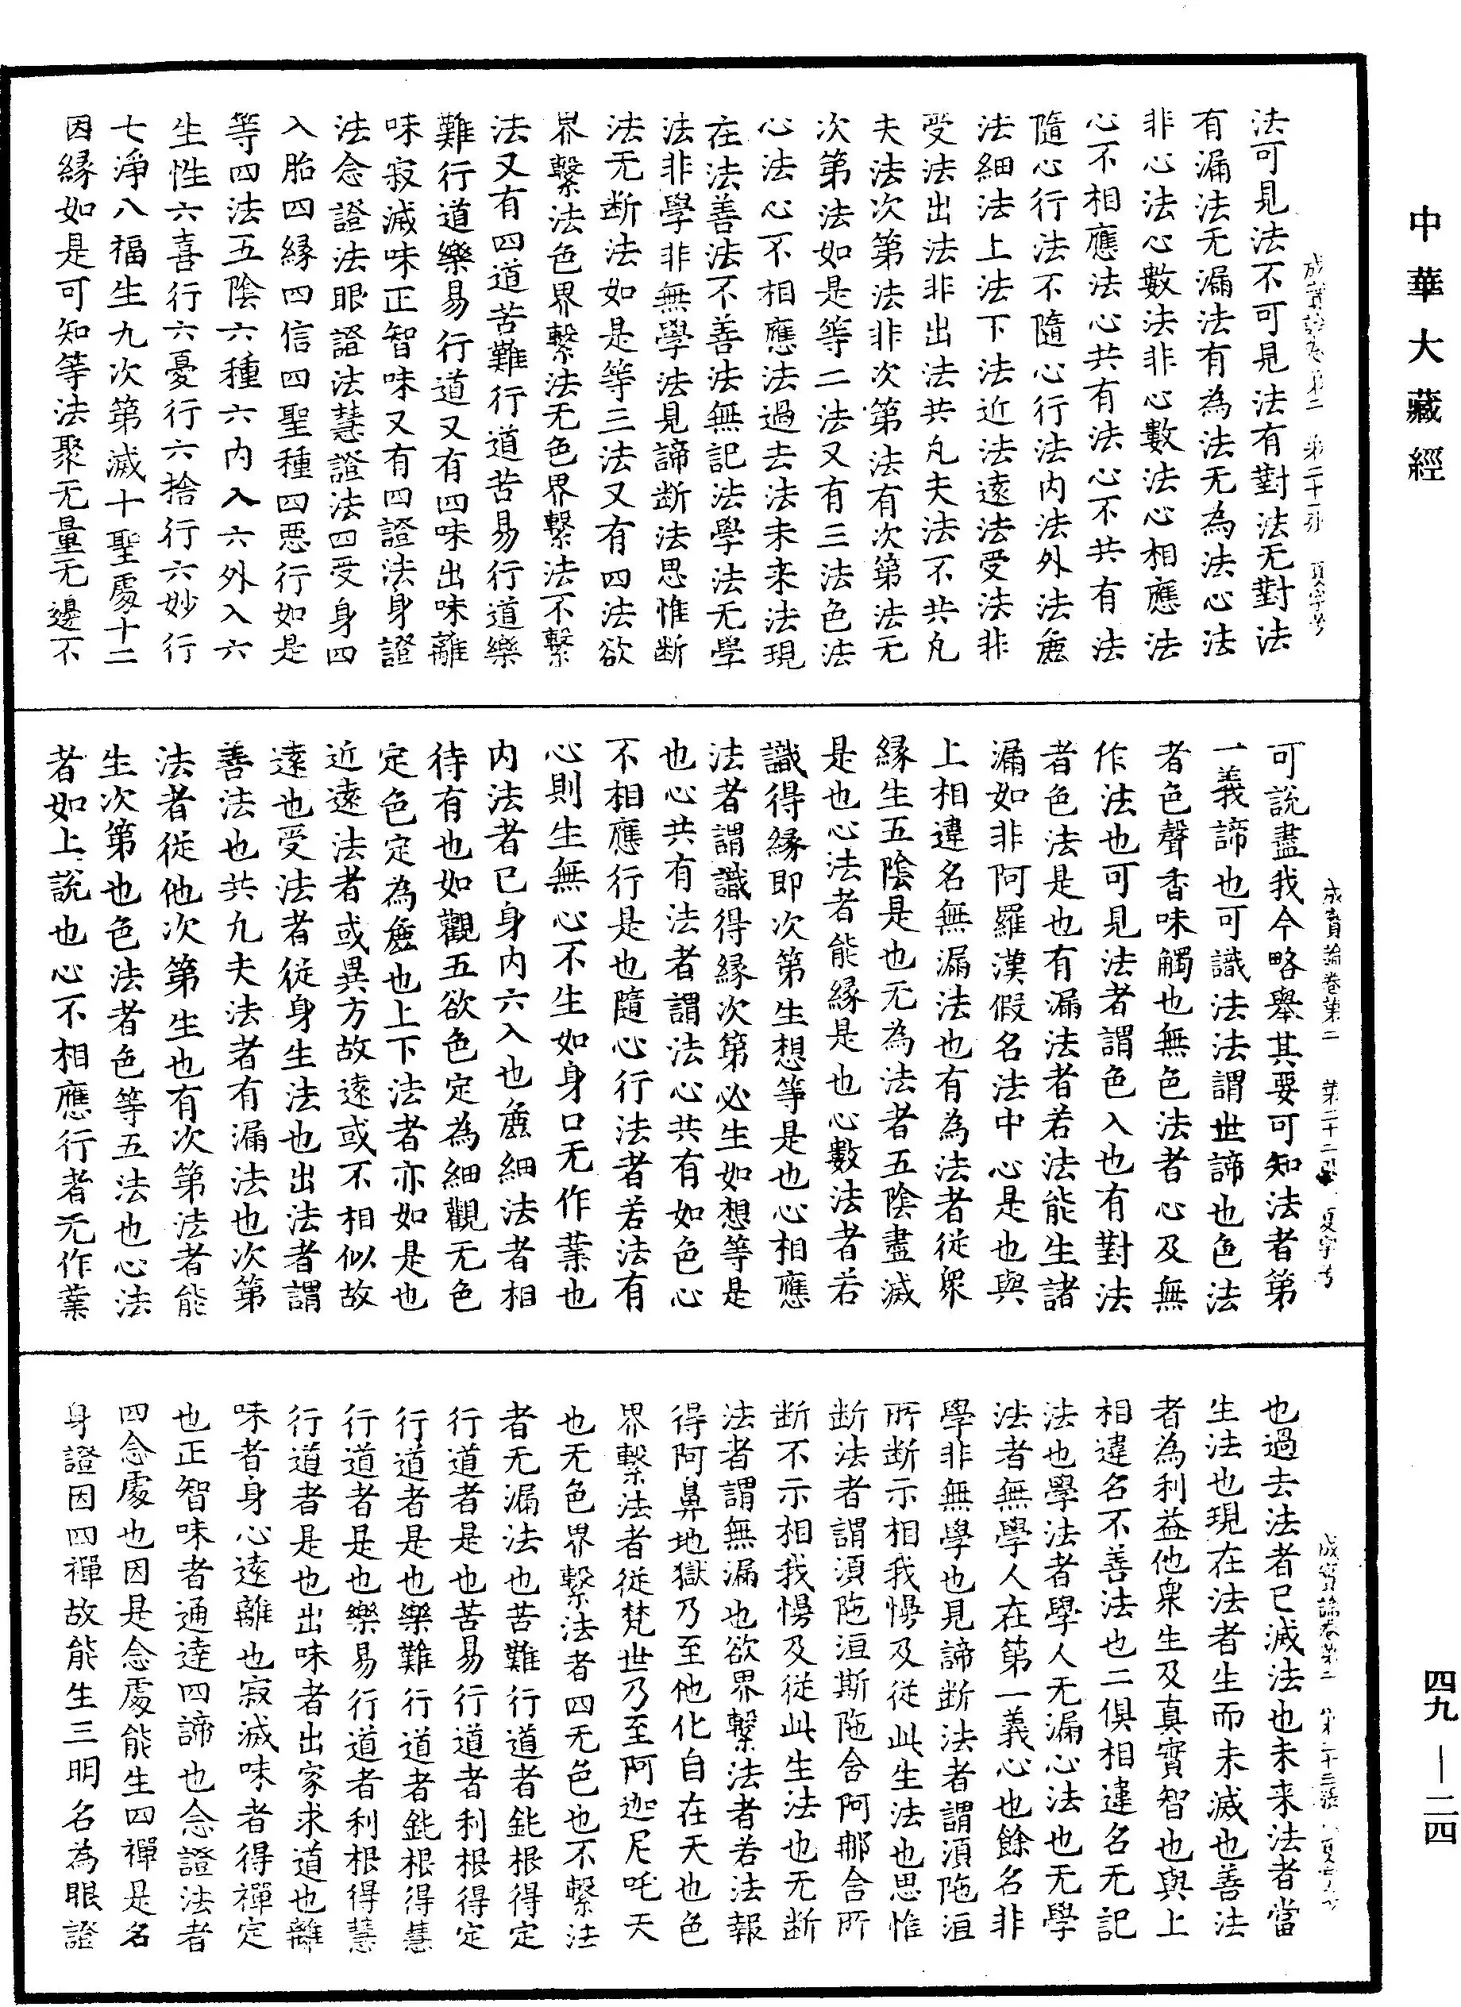 中華大藏經
法可見法不可見法有對法无對法
有漏法无漏法有為法无為法心法
非心法心數法非心數法心相應法
心不相應法心共有法心不共有法
隨心行法不隨心行法內法外法麁
法細法上法下法近法遠法受法非
受法出法非出法共凡夫法不共凡
夫法次第法非次第法有次第法无
次第法如是等二法又有三法色法
心法心不相應法過去法未来法現
在法善法不善法無記法學法无學
法非學非無學法見諦断法思惟断
法无断法如是等三法又有四法欲
界繫法色界繫法无色界繫法不繫
法又有四道苦難行道苦易行道樂
難行道樂易行道又有四味出味離
味寂滅味正智味又有四證法身證
法念證法眼證法慧證法四受身四
入胎四緣四信四聖種四惡行如是
等四法五陰六種六內入六外入六
生性六喜行六憂行六捨行六妙行
七淨八福生九次第滅十聖處十二
因緣如是可知等法聚无量无邊不
成實論卷第二 第二十二張 夏字号
可說盡我今略舉其要可知法者第
一義諦也可識法法謂世諦也色法
者色聲香味觸也無色法者心及無
作法也可見法者謂色入也有對法
者色法是也有漏法者若法能生諸
漏如非阿羅漢假名法中心是也與
上相違名無漏法也有為法者從衆
緣生五陰是也无為法者五陰盡滅
是也心法者能緣是也心數法者若
識得緣即次第生想等是也心相應
法者謂識得緣次第必生如想等是
也心共有法者謂法心共有如色心
不相應行是也隨心行法者若法有
心則生無心不生如身口无作業也
內法者已身內六入也麁細法者相
待有也如觀五欲色定為細觀无色
定色定為麁也上下法者亦如是也
近遠法者或異方故遠或不相似故
遠也受法者從身生法也出法者謂
善法也共凡夫法者有漏法也次第
法者從他次第生也有次第法者能
生次第也色法者色等五法也心法
者如上說也心不相應行者无作業
也過去法者已滅法也未来法者當
生法也現在法者生而未滅也善法
者為利益他衆生及真實智也與上
相違名不善法也二俱相違名无記
法也學法者學人无漏心法也无學
法者無學人在第一義心也餘名非
學非無學也見諦断法者謂須陁洹
所断示相我慢及從此生法也思惟
断法者謂須陁洹斯陁含阿那含所
断不示相我慢及從此生法也无断
法者謂無漏也欲界繫法者若法報
得阿鼻地獄乃至他化自在天也色
界繫法者從梵世乃至阿迦尼吒天
也无色界繫法者四无色也不繫法
者无漏法也苦難行道者鈍根得定
行道者是也苦易行道者利根得定
行道者是也樂難行道者鈍根得慧
行道者是也樂易行道者利根得慧
行道者是也出味者出家求道也離
味者身心遠離也寂滅味者得禪定
也正智味者通達四諦也念證法者
四念處也因是念處能生四禪是名
身證因四禪故能生三明名為眼證
四九—二四